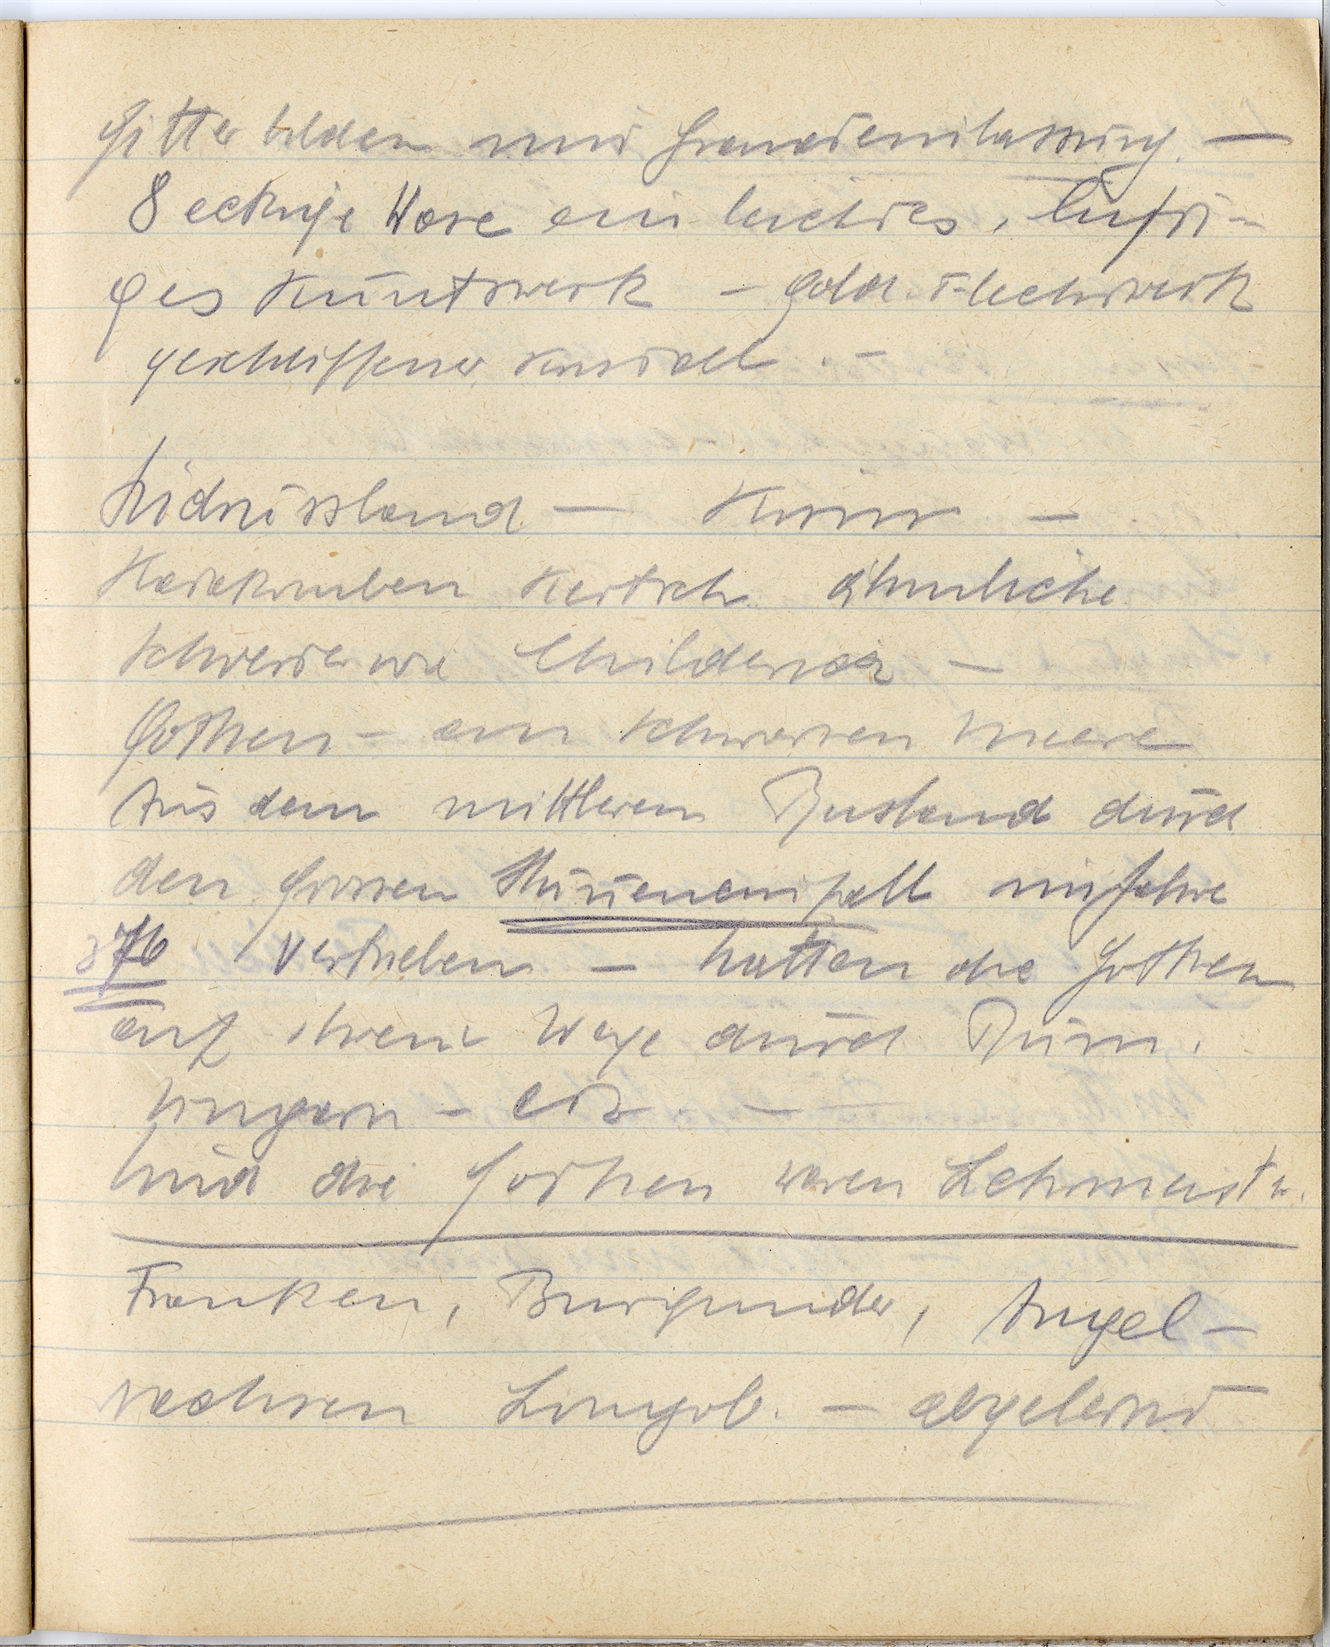 Gitter bilden mit Granateneinlassung. —
8 eckige Vase ein leichtes, lufti-
ges Kunstwerk – gold. Flechtwerk
geschliffener Kristall. –
Südrussland — Krim —
Katakomben Kertsch ähnliche
Schwerter wie Childerich —
Gothen – am schwarzen Meere
Aus dem mittleren Russland durch
den grossen Hunneneinfall im Jahre
376 vertrieben — hatten die Gothen
auf ihrem Wege durch Rum.
Ungarn – etz. —
Und die Gothen waren Lehrmeistr.
Franken, Burgunder, Angel-
sachsen Langob. — abgelernt